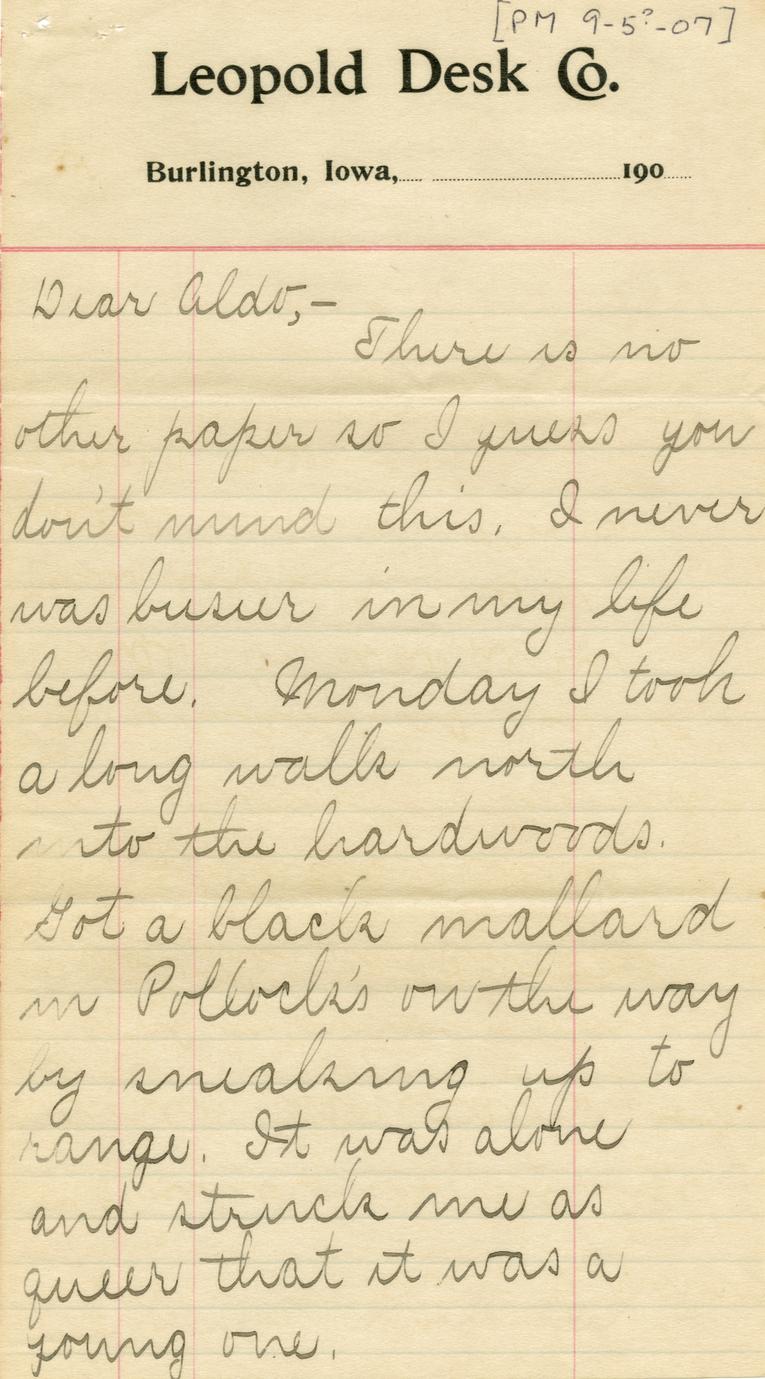 [PM 9-5?-07]
Leopold Desk Co.
Burlington, Iowa, 190
Dear Aldo,-
There is no
other paper so I guess you
don't mind this. I never
was busier in my life
before. Monday I took
a long walk north
into the hardwoods.
Got a black mallard
in Pollock's on the way
by sneaking up to
range. It was alone
and struck me as
queer that it was a
young one.